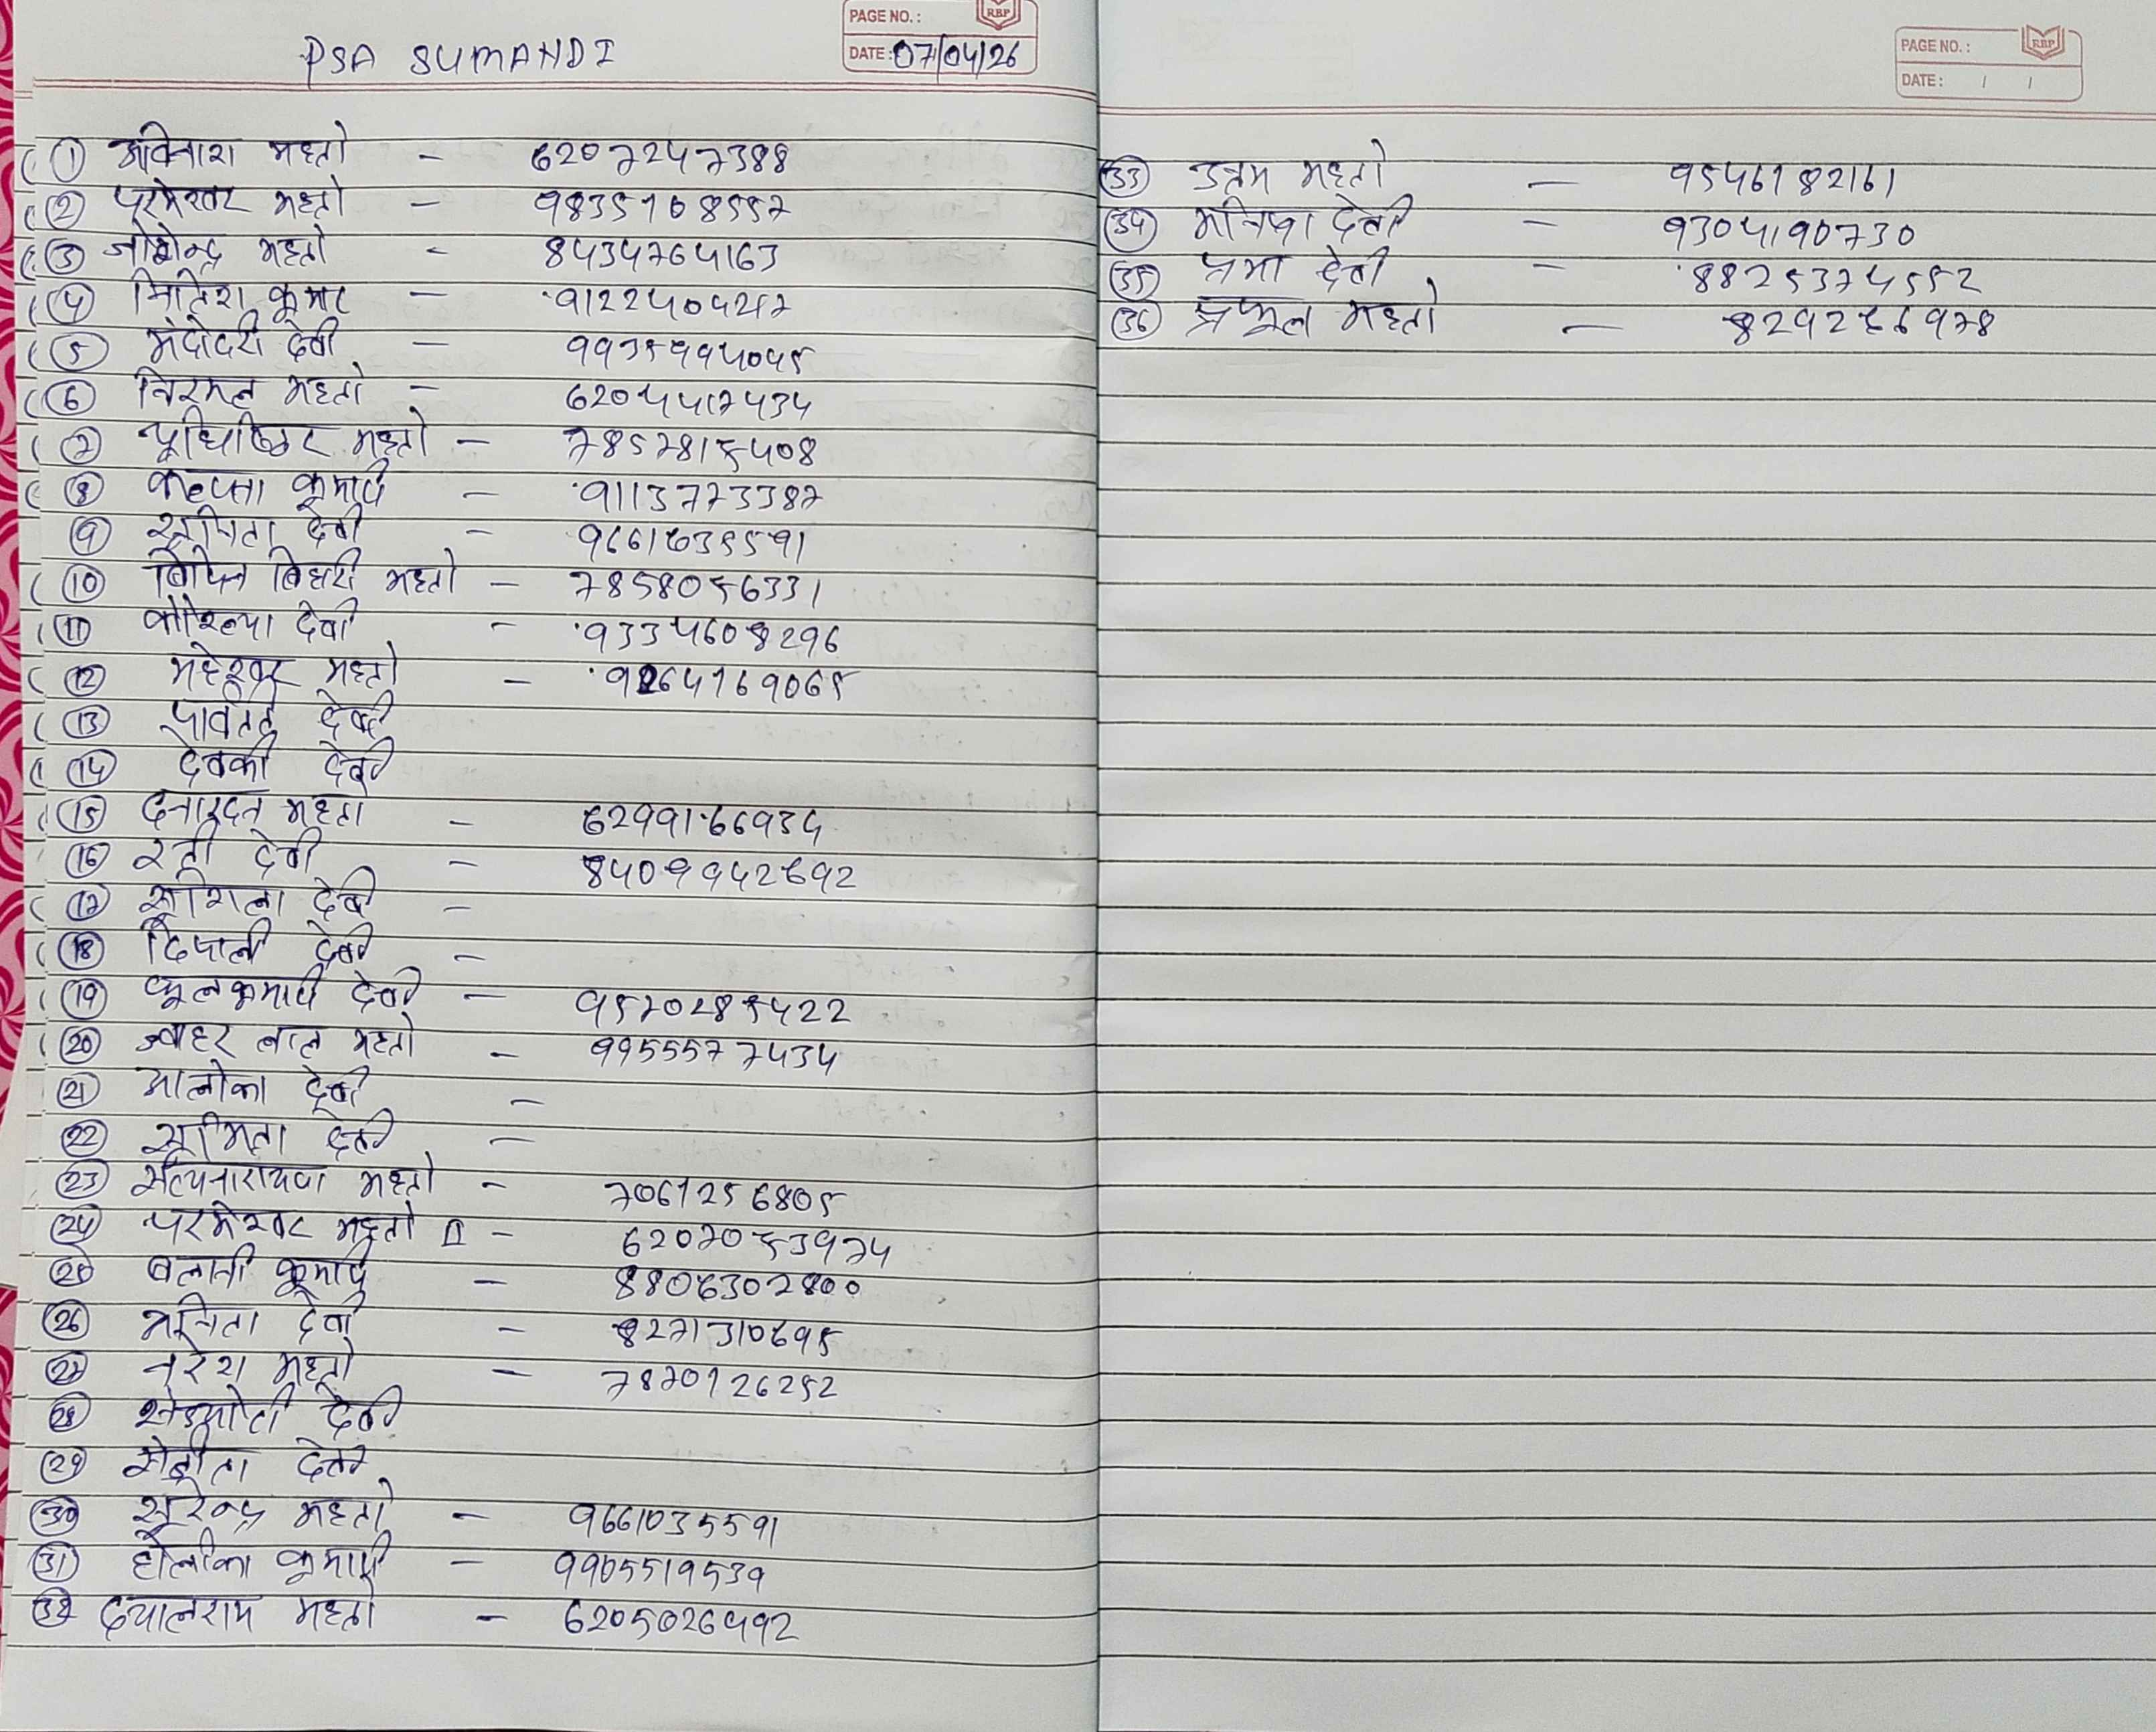 PAGE NO. :
RBP
PSA SUMANDI
DATE : 07/04/26
① अविनाश महतो - 6207247388
② परमेश्वर महतो - 9835168557
③ जोगेन्द्र महतो - 8434764163
④ मितेश कुमार - 9122404247
⑤ मंदोदरी देवी -
⑥ निरमल महतो - 6204417434
⑦ यूधिष्ठिर महतो - 7857815408
⑧ कल्पना कुमारी - 9113773387
⑨ सुनिता देवी - 9661035591
⑩ बिपिन बिहारी महतो - 7858056331
⑪ कौशल्या देवी - 9334608296
⑫ महेश्वर महतो -
⑬ पार्वती देवी
⑭ देवकी देवी
⑮ महतो - 6299166934
⑯ रती देवी - 8409942692
⑰ सुशिला देवी -
⑱ दिपाली देवी -
⑲ फूलकुमारी देवी - 9570285422
⑳ ज्वाहर लाल महतो - 9955577434
㉑ मालोका देवी -
㉒ सुमिता देवी -
㉓ सत्यनारायण महतो - 7061256805
㉔ परमेश्वर महतो II - 6207053974
㉕ कुमारी -
㉖ अनिता देवी - 8271310695
㉗ नरेश महतो - 7870126252
㉘ देवी
㉙ संगीता देवी
㉚ सुरेन्द्र महतो - 9661035591
㉛ होलीका कुमारी - 9905519539
㉜ दयालराम महतो - 6205026492
PAGE NO. :
RBP
DATE : / /
㉝ उत्तम महतो - 9546182161
㉞ मनिषा देवी - 9304190730
㉟ प्रभा देवी - 8825374552
㊱ प्रफूल महतो - 8292266978